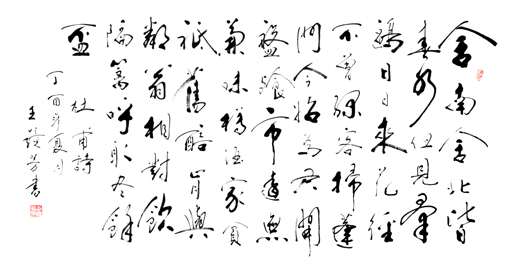 舍南舍北皆
春水但見羣
鷗日日來花徑
不曾緣客掃蓬
門今始為君開
盤飧市遠無
兼味樽酒家貧
祗舊醅肯與
鄰翁相對飲
隔籬呼取盡餘
盃
杜甫詩
丁酉年夏月
王芳書